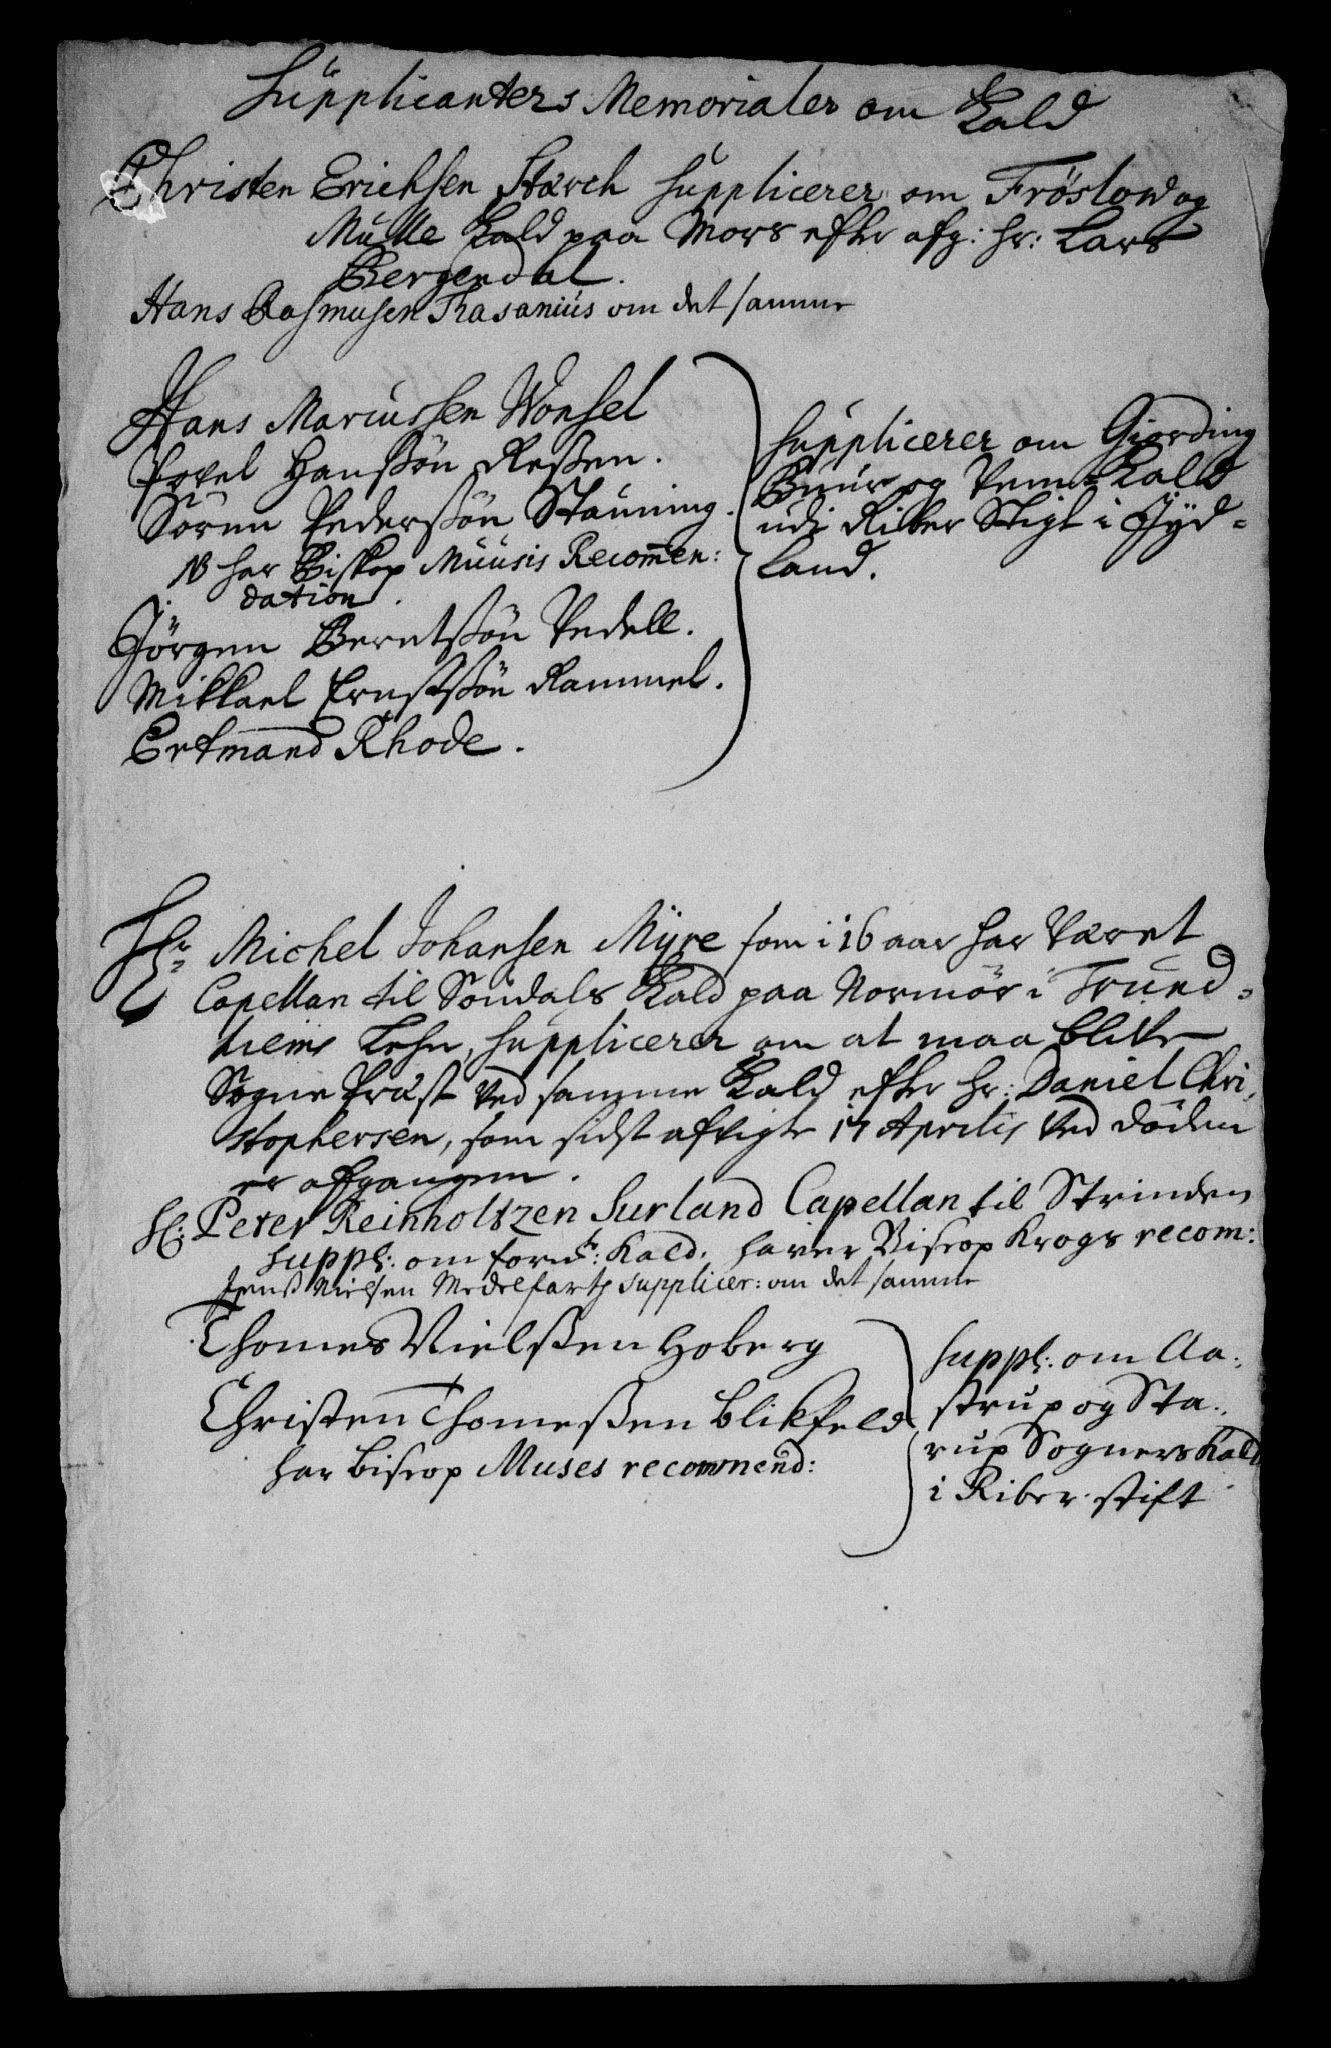 Supplicanters Memorialer om Kald
Christen Erichsen Stærch supplicerer om Fröslow og
Mulle Kald paa Mors efter afg: hr: Lars
Bergendal.
Hans Rasmusen Thasanius om det samme
Hans Mariussen Wonsel
Povel Hanssön Ressen.
Sören Pederssön Stauning.
NB har Biskop Muusis Recommen:
dation.
Jörgen Berntssön Vedell.
Mikkael Ernstssön Rammel.
Ertmand Rhode.
supplicerer om Giørding
Buur og Vem Kald
udi Riber Stigt i Jyd-
Land.
Hr Michel Johansen Myre som i 16 aar har været
Capellan til Sundals Kald paa Normör i Trund-
hiems Lehn, supplicerer om at maa blive
Sogne Præst ved samme Kald efter hr: Daniel Chri,
stophersen, som sidst afvigte 17 Aprilis ved döden
er affgangen.
Hr: Peter Reinholtzen Surland Capellan til Strinden
suppl: om fornte: Kald. hafver Biscop Krogs recom:
Jenss Nielsen Medelfarth supplicer: om det samme
Thomes Nielssen Hoberg
Christen Thomessen Blikfeld
har biscop Muses recommend:
suppl: om Aa:
strup og Sta:
rup Sogners Kald
i Riber stift